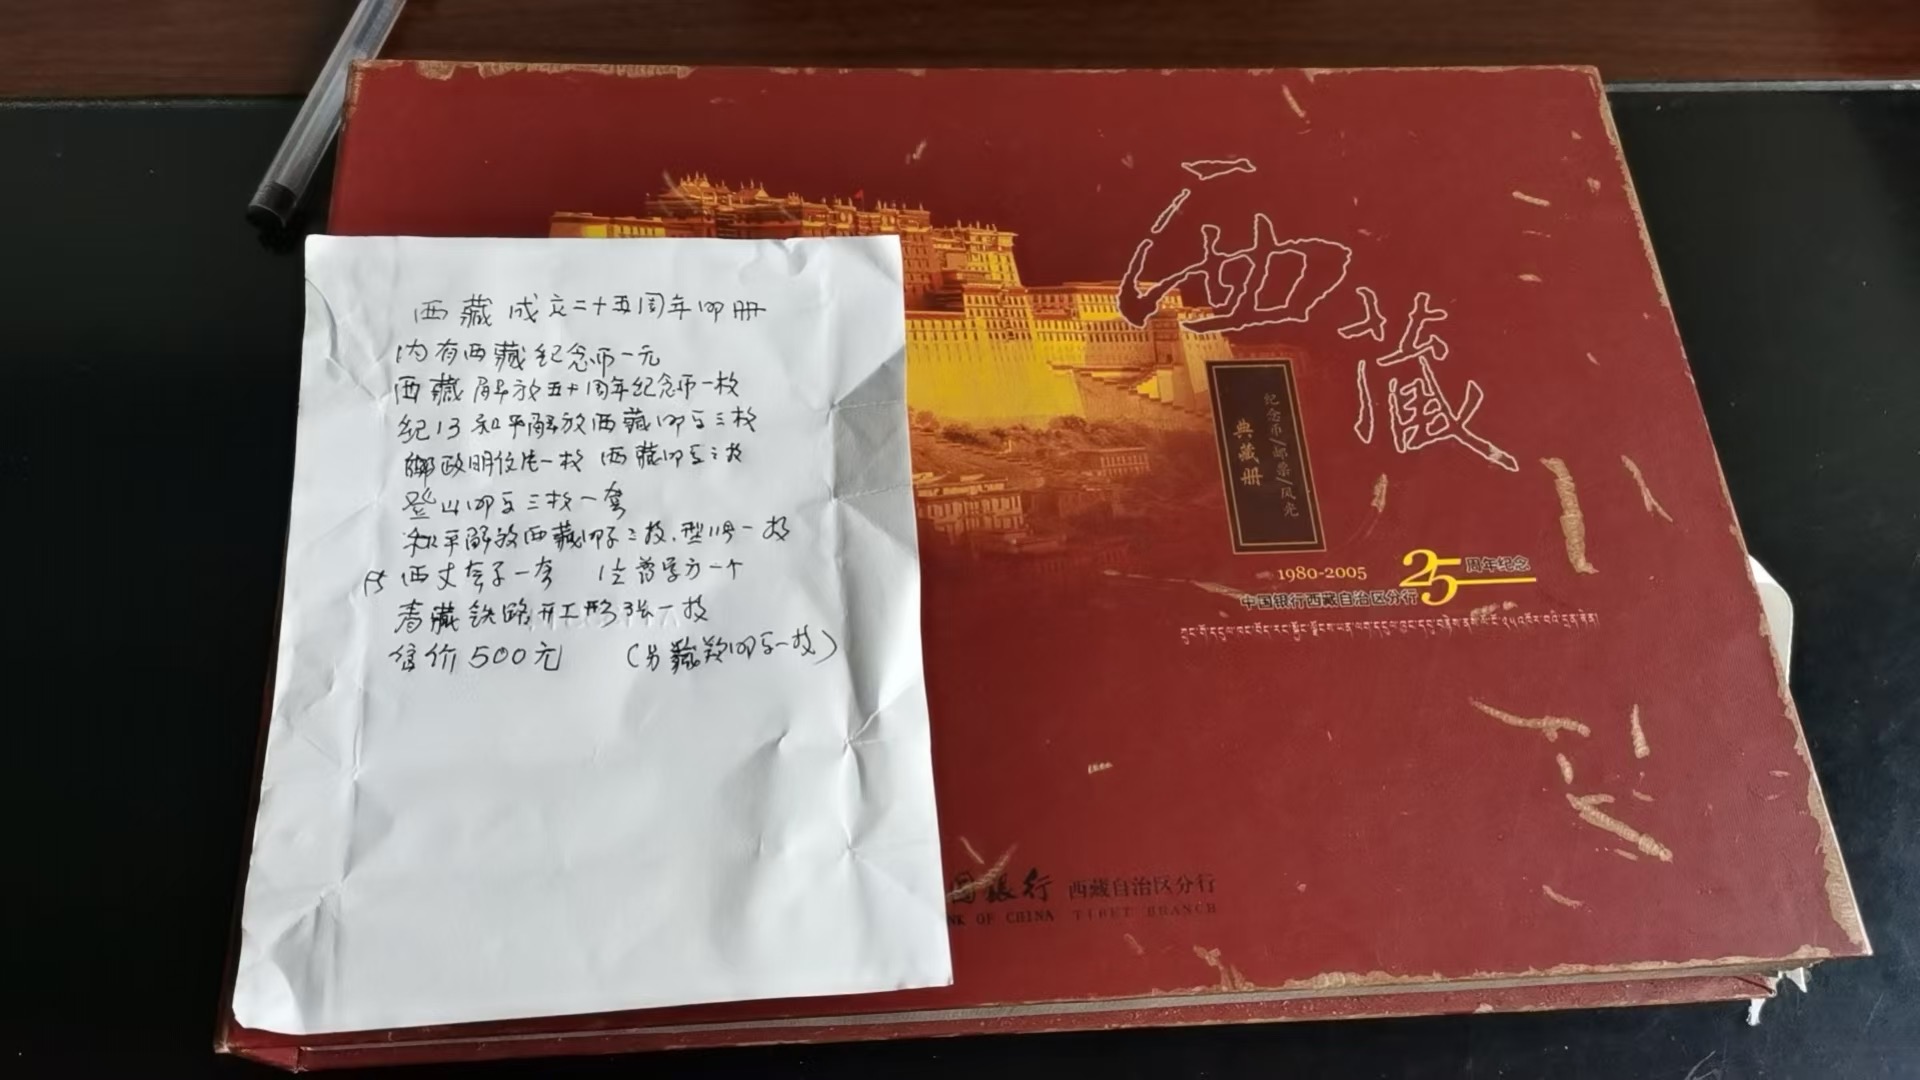 西藏成立二十五周年邮册
内有西藏纪念币一元
西藏解放五十周年纪念币一枚
纪13和平解放西藏邮票三枚
邮政明信片一枚 西藏邮票三枚
登山邮票三枚一套
和平解放西藏邮票二枚.型张一枚
青藏铁路开工形张一枚
售价500元 (另藏羚邮票一枚)
西藏
纪念币/邮票/风光
典藏册
1980-2005
25周年纪念
中国银行西藏自治区分行
国银行 西藏自治区分行
NK OF CHINA TIBET BRANCH